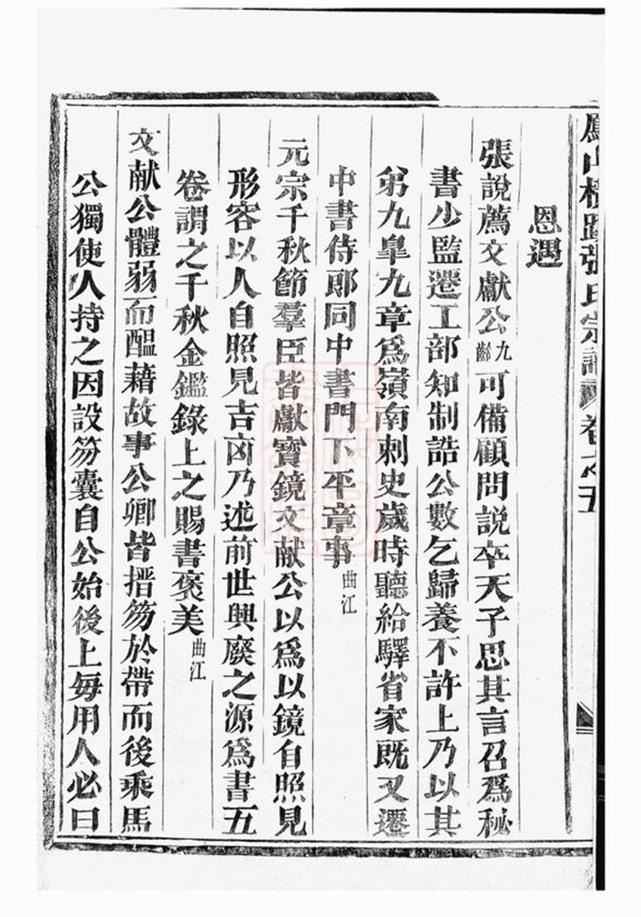 張氏宗譜 卷之五
恩遇
張說薦文獻公九齡可備顧問說卒天子思其言召爲秘
書少監遷工部知制誥公數乞歸養不許上乃以其
弟九臯九章爲嶺南刺史歲時聽給驛省家既又遷
中書侍郎同中書門下平章事曲江
元宗千秋節羣臣皆獻寶鏡文献公以爲以鏡自照見
形容以人自照見吉凶乃述前世興廢之源爲書五
卷謂之千秋金鑑錄上之賜書褒美曲江
文献公體弱而醞藉故事公卿皆搢笏於帶而後乘馬
公獨使人持之因設笏囊自公始後上每用人必曰